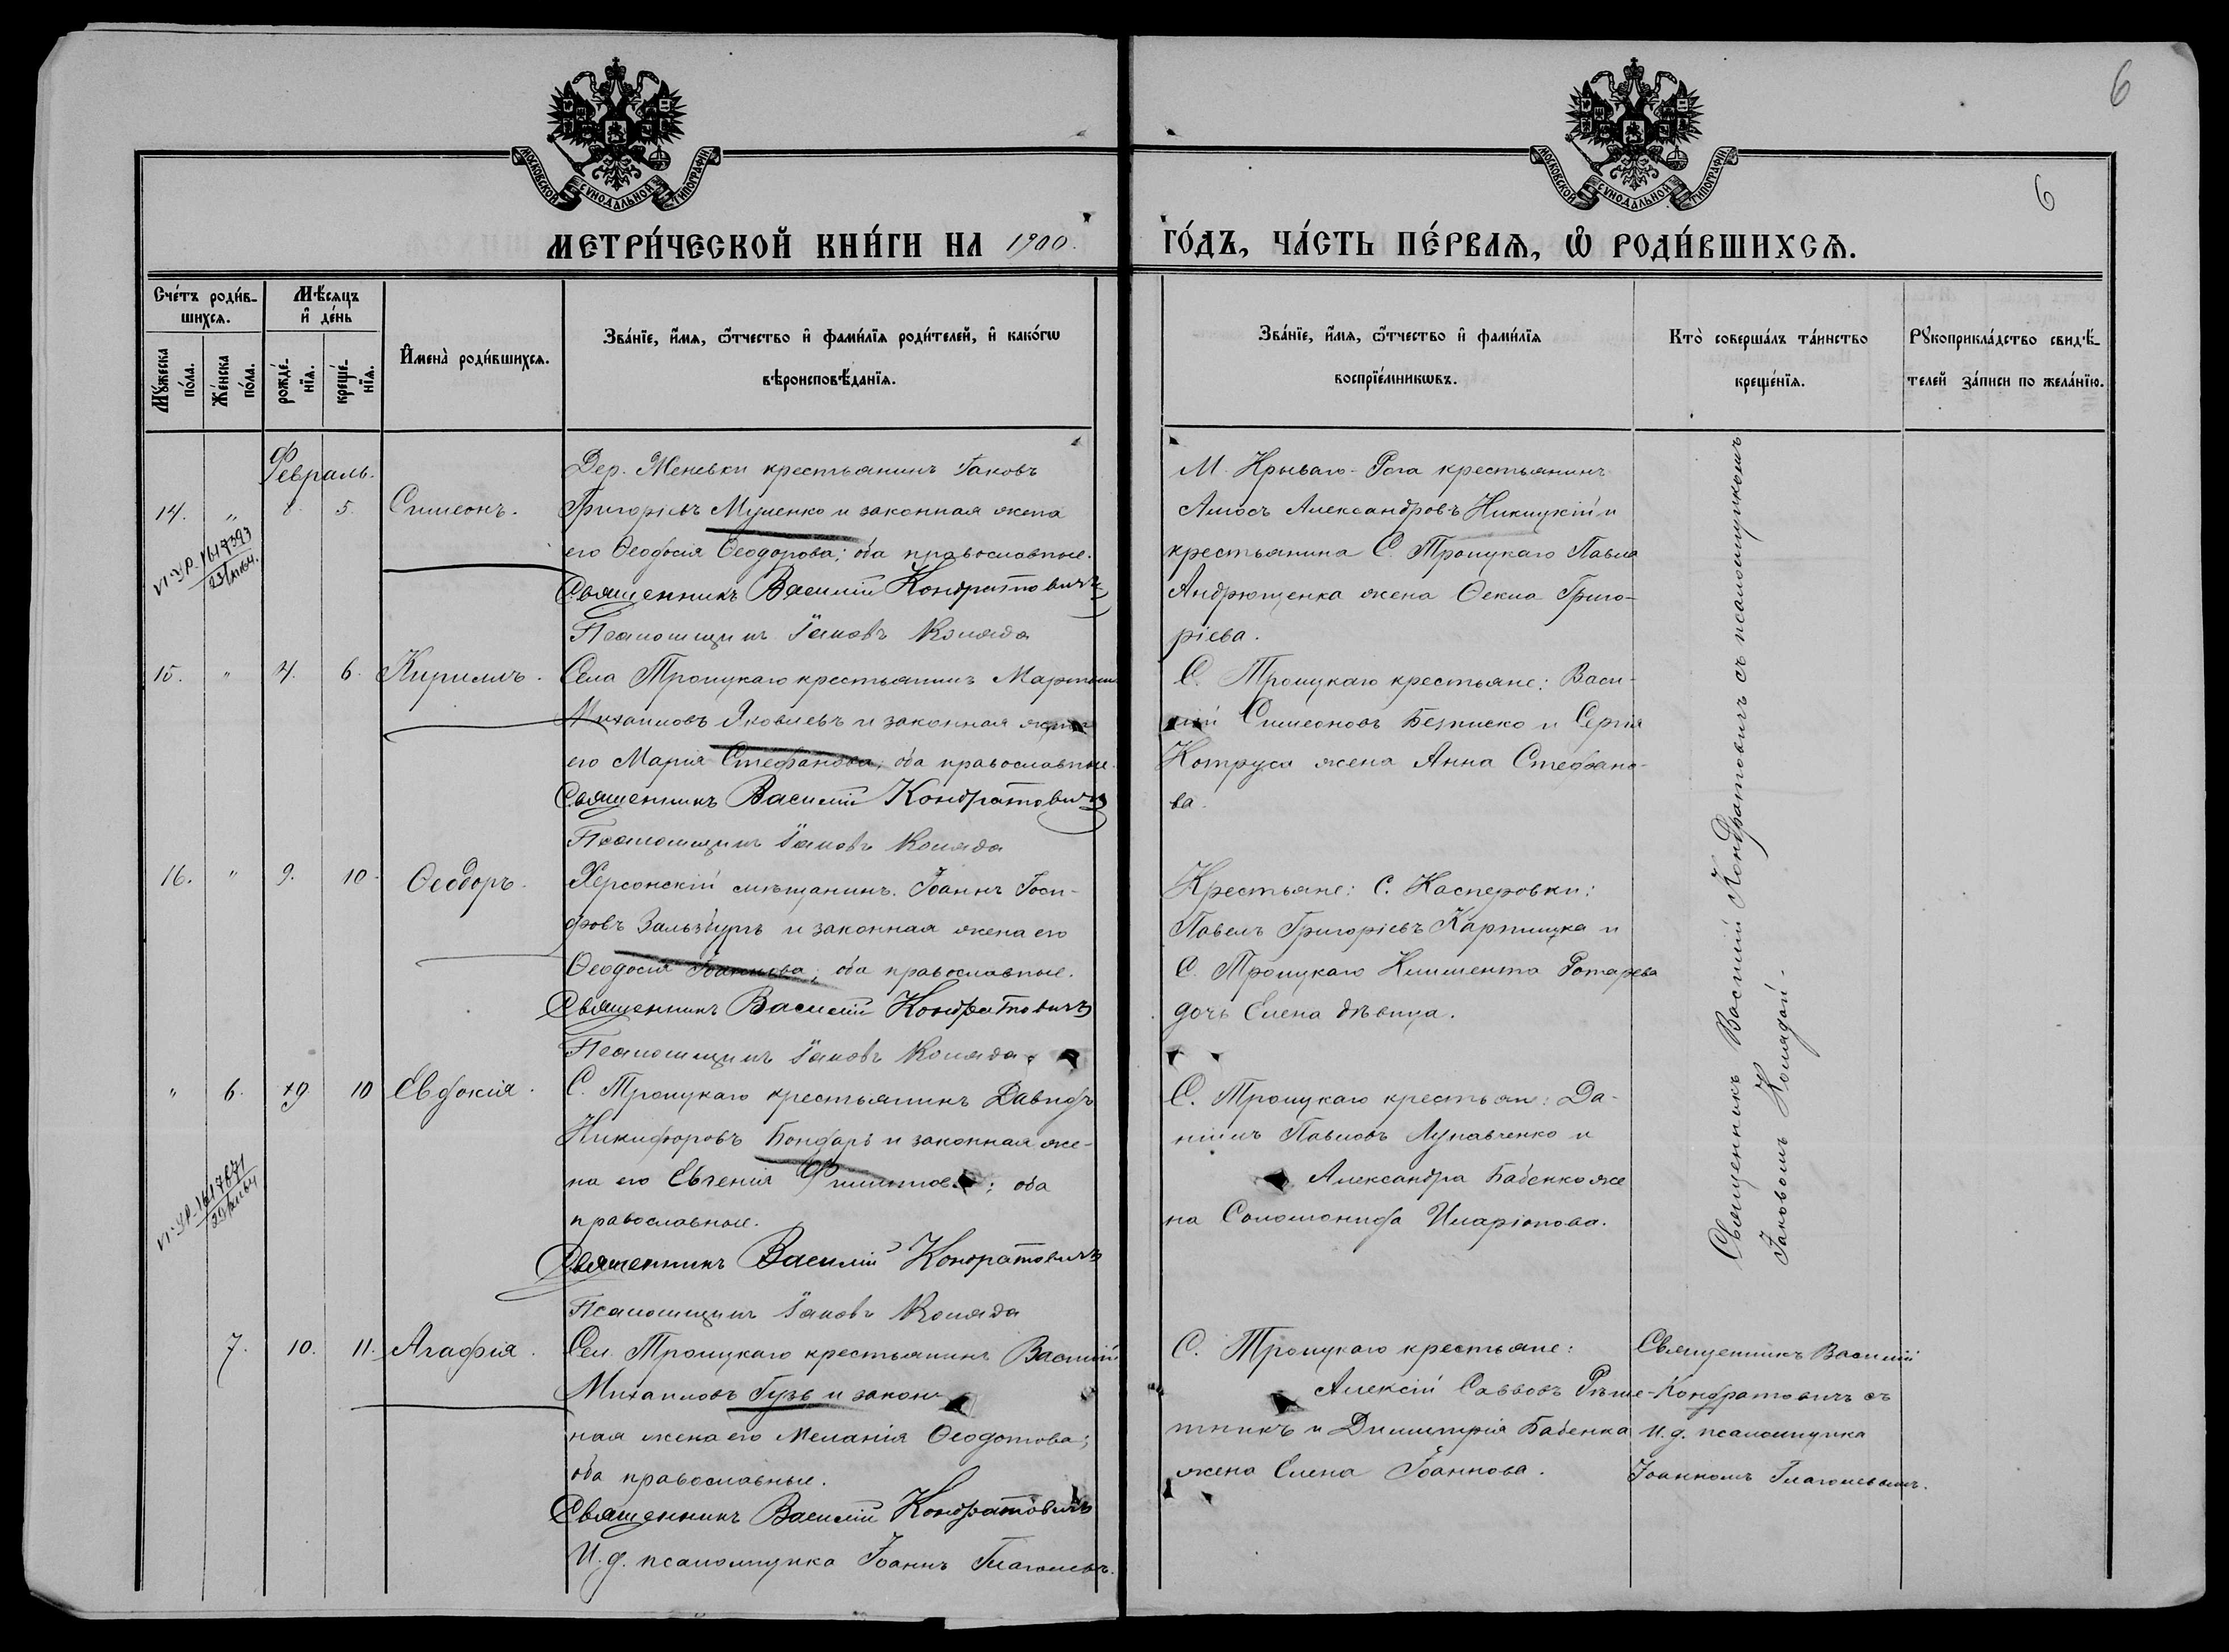 6
МОСКОВСКОЙ СѴНОДАЛЬНОЙ ТИПОГРАФІИ
МОСКОВСКОЙ СѴНОДАЛЬНОЙ ТИПОГРАФІИ
6
МЕТРИ́ЧЕСКОЙ КНИ́ГИ НА 1900. ГО́ДЪ, ЧА́СТЬ ПЕ́РВАѦ, Ѽ РОДИ́ВШИХСѦ.
Сче́тъ роди́в-
шихсѧ.
Мꙋжеска по́ла.
Же́нска по́ла.
Мѣ́сяцъ
и҆ де́нь
рожде́-
нїѧ.
креще́-
нїѧ.
И҆мена̀ роди́вшихсѧ.
Зва́нїе, и҆́мѧ, ѻ҆́тчество и҆ фами́лїѧ роди́телей, и҆ како́гѡ
вѣроисповѣ́данїѧ.
Зва́нїе, и҆́мѧ, ѻ҆́тчество и҆ фами́лїѧ
воспрїе́мникѡвъ.
Кто̀ соверша́лъ та́инство
креще́нїѧ.
Рꙋкоприкла́дство свидѣ́-
телей за́писи по жела́нїю.
Февраль.
14. " 5. Симеонъ.
Дер. крестьянинъ Іаковъ
Григоріевъ Муленко и законная жена
его Ѳеодосія Ѳеодорова; оба православные.
Священникъ Василій Кондратовичъ
Псаломщикъ Іаковъ Коляда
М. Криваго-Рога крестьянинъ
Амосъ Александровъ Никицкій и
крестьянина С. Троицкаго Павла
Андрющенка жена Ѳекла Григо-
ріева.
15. " 4. 6. Кириллъ.
Села Троицкаго крестьянинъ
Михаиловъ Яковлевъ и законная жена
его Марія Стефанова; оба православные.
Священникъ Василій Кондратовичъ
Псаломщикъ Іаковъ Коляда
С. Троицкаго крестьяне: Васи-
лій Симеоновъ и Сергія
Котруса жена Анна Стефано-
ва.
16. " 9. 10. Ѳеодоръ.
Херсонскій мѣщанинъ Іоаннъ Іоси-
фовъ и законная жена его
Ѳеодосія Іоаннова; оба православные.
Священникъ Василій Кондратовичъ
Псаломщикъ Іаковъ Коляда
Крестьяне: С. Касперовки:
Павелъ Григоріевъ и
С. Троицкаго Климента Ротарева
дочь Елена дѣвица.
" 6. 9. 10 Евдокія.
С. Троицкаго крестьянинъ Давидъ
Никифоровъ Бондарь и законная же-
на его Евгенія Филиппова; оба
православные.
Священникъ Василій Кондратовичъ
Псаломщикъ Іаковъ Коляда
С. Троицкаго крестьяне: Да-
ніилъ Павловъ Лупавченко и
Александра Бабенко же
на Соломонида Иларіонова.
Священникъ Василій Кондратовичъ съ псаломщикомъ
Іаковомъ Колядой.
7. 10. 11. Агафія.
Сел. Троицкаго крестьянинъ Василій
Михаиловъ Гузь и закон-
ная жена его Меланія Ѳеодотова;
оба православные.
Священникъ Василій Кондратовичъ
И. д. псаломщика Іоаннъ Глаголевъ.
С. Троицкаго крестьяне:
Алексій Саввовъ Рѣше-
тникъ и Димитрія Бабенка
жена Елена Іоаннова.
Священникъ Василій
Кондратовичъ съ
и. д. псаломщика
Іоанномъ Глаголевымъ.